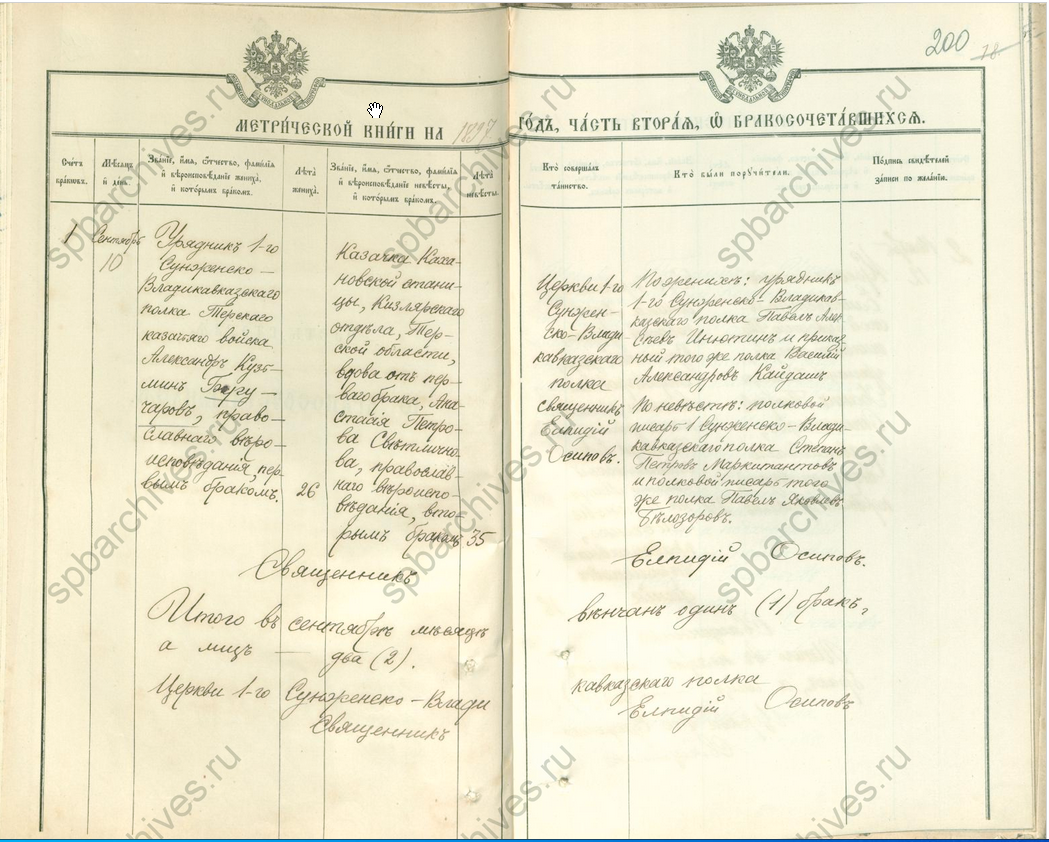 200
78
МЕТРИЧЕСКОЙ КНИГИ НА 1897 ГОДЪ, ЧАСТЬ ВТОРАЯ, Ѡ БРАКОСОЧЕТАВШИХСЯ.
Счетъ браковъ.
Мѣсяцъ и день.
Званіе, имя, отчество, фамилія
и вѣроисповѣданіе жениха,
и которымъ бракомъ.
Лѣта жениха.
Званіе, имя, отчество, фамилія
и вѣроисповѣданіе невѣсты,
и которымъ бракомъ.
Лѣта невѣсты.
Кто совершалъ
таинство.
Кто были поручители.
Подпись свидѣтелей
записи по желанію.
1
Сентябрь
10
Урядникъ 1-го
Сунженско-
Владикавказскаго
полка Терскаго
казачьяго войска
Александръ Кузь-
минъ
чаровъ, право-
славнаго вѣро-
исповѣданія, пер-
вымъ бракомъ.
26
Казачка Каха-
новской стани-
цы, Кизлярскаго
отдѣла, Тер-
ской области,
вдова отъ пер-
ваго брака, Ана-
стасія Петро-
ва Свѣтлично-
ва, православ-
наго вѣроиспо-
вѣданія, вто-
рымъ бракомъ
35
Церкви 1-го
Сунжен-
ско-Влади
кавказскаго
полка
священникъ
Елпидій
Осиповъ.
По женихѣ: урядникъ
1-го Сунженско-Владикав-
казскаго полка Павелъ Алек
сѣевъ Инютинъ и приказ
ной того же полка Василій
Александровъ Кайдашъ
По невѣстѣ: полковой
писарь 1 Сунженско-Влади-
кавказскаго полка Степанъ
Петровъ Маркитантовъ
и полковой писарь того
же полка Павелъ Яковлевъ
Бѣлозоровъ.
Священникъ Елпидій Осиповъ.
Итого въ сентябрѣ мѣсяцѣ вѣнчанъ одинъ (1) бракъ,
а лицъ — два (2).
Церкви 1-го Сунженско-Влади кавказскаго полка
Священникъ Елпидій Осиповъ
spbarchives.ru
spbarchives.ru
spbarchives.ru
spbarchives.ru
spbarchives.ru
spbarchives.ru